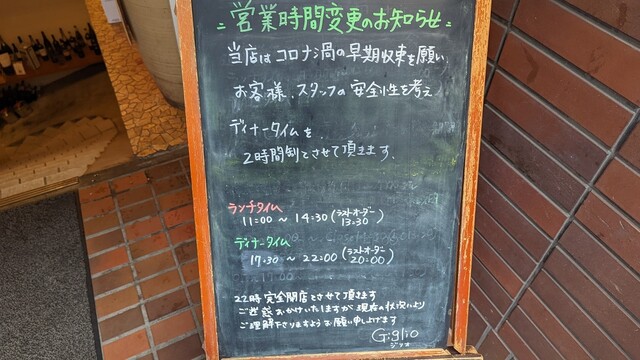 = 営業時間変更のお知らせ =
当店はコロナ渦の早期収束を願い、
お客様、スタッフの安全性を考え
ディナータイムを、
2時間制とさせて頂きます、
ランチタイム
11:00 ～ 14:30 (ラストオーダー 13:30)
ディナータイム
17:30 ～ 22:00 (ラストオーダー 20:00)
22時完全閉店とさせて頂きます
ご迷惑おかけいたしますが現在の状況により
ご理解下さりますようお願い申し上げます
Giglio
ジリオ